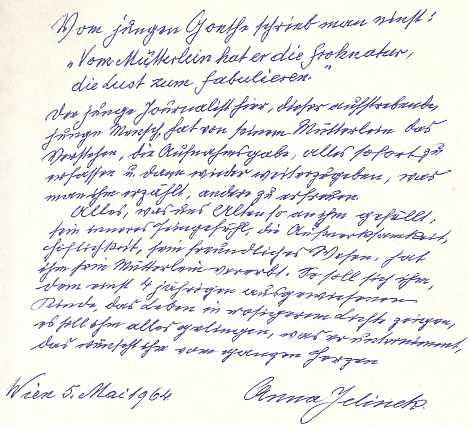 Vom jungen Goethe schrieb man einst:
„Vom Mütterlein hat er die Frohnatur,
die Lust zum Fabulieren."
Der junge Journalist hier, dieser aufstrebende
junge Mensch, hat von seinem Mütterlein das
Verstehen, die Aufnahmsgabe, alles sofort zu
erfassen u. dann wieder weiterzugeben, was
man ihm erzählt, andere zu erfreuen.
Alles, was uns Alten so an ihm gefällt,
sein inneres Feingefühl, die Aufmerksamkeit,
Höflichkeit, sein freundliches Wesen, hat
ihm sein Mütterlein vererbt. So soll sich ihm,
dem einst 4 jährigen ausgewiesenen
Kinde, das Leben in rosigerem Lichte zeigen,
es soll ihm alles gelingen, was er unternimmt,
das wünscht ihm vom ganzen Herzen
Wien 5. Mai 1964 Anna Jelinek